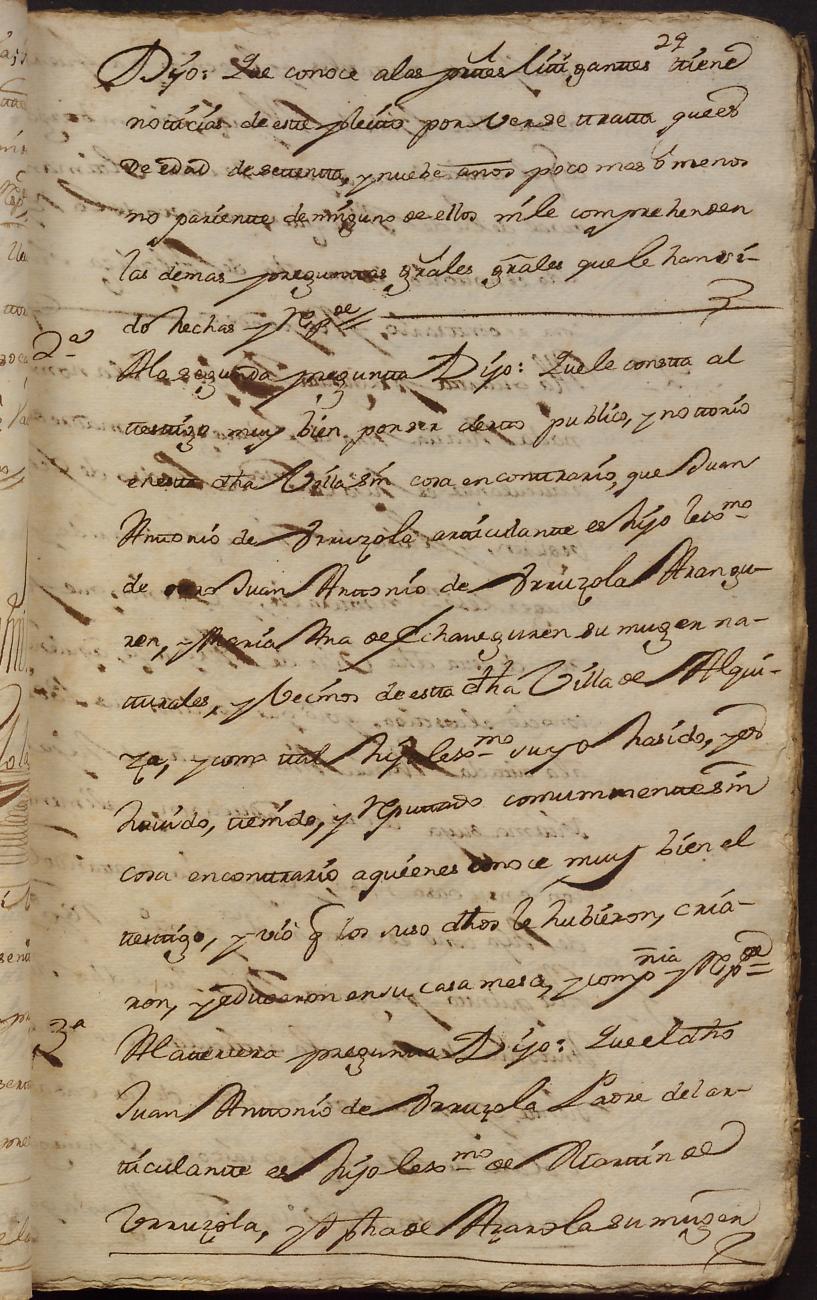 29
Dijo: Que conoce alas prttes littigantes ttiene
notticias de este pleitto por verse tratta quees
de edad de settentta, y nuebe años poco mas ó menos
no pariente de ninguno de ellos nile comprehenden
las demas preguntas grâles grâles que le han si-
do hechas y Respde
2a
Ala segunda pregunta Dijo: Quele constta al
testtigo muy bien por ser cierto publico, y nottorio
en esta dha Villa sin cosa en conttrario, que Juan
Anttonio de Urruzola articulante es hijo lexmo
de otro Juan Anttonio de Urruzola Arangu-
ren, y Maria Ana de Echaveguren su muger na-
tturales, y Vecinos de estta dha Villa de Alqui-
za, y como ttal hijo lexmo suyo hasido, y es
havido, ttenido, y Reputtado comunmentte sin
cosa en conttrario aquienes conoce muy bien el
testtigo, y vió q los suso dhos le hubieron, cria-
ron, y educaron en su casa mesa, y compnia y Respde
3a
Ala tercera pregunta Dijo: Que el dho
Juan Anttonio de Urruzola Padre del ar-
ticulantte es hijo lexmo de Marttin de
Urruzola, y de Arazola su muger